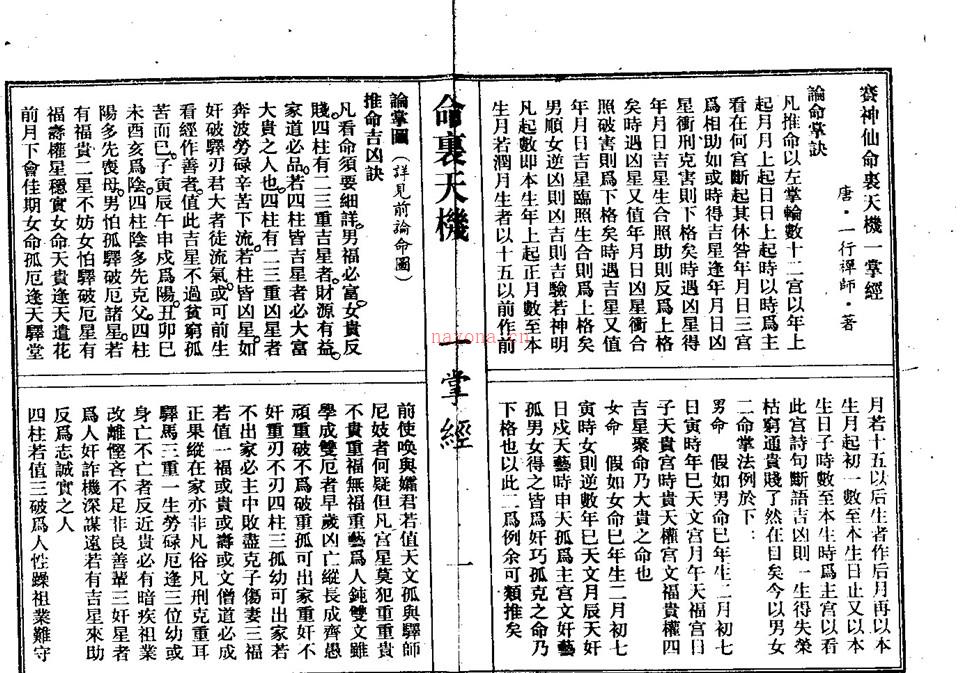 賽神仙命裏天機一掌經
唐·一行禪師·著
論命掌訣
凡推命以左掌輪數十二宮以年上
起月月上起日日上起時以時爲主
看在何宮斷起其休咎年月日三宮
爲相助如或時得吉星逢年月日凶
星衝刑克害則下格矣時遇凶星得
年月日吉星生合照助則反爲上格
矣時遇凶星又值年月日凶星衝合
照破害則爲下格矣時遇吉星又值
年月日吉星臨照生合則爲上格矣
男順女逆凶則凶吉則吉驗若神明
凡起數即本生年上起正月數至本
生月若潤月生者以十五以前作前
月若十五以后生者作后月再以本
生月起初一數至本生日止又以本
生日子時數至本生時爲主宮以看
此宮詩句斷語吉凶則一生得失榮
枯窮通貴賤了然在目矣今以男女
二命掌法例於下：
男命 假如男命巳年生二月初七
日寅時年巳天文宮月午天福宮日
子天貴宮時貴天權宮文福貴權四
吉星聚命乃大貴之命也
女命 假如女命巳年生二月初七
寅時女則逆數年巳天文月辰天奸
日戌天藝時申天孤爲主宮文奸藝
孤男女得之皆爲奸巧孤克之命乃
下格也以此二爲例余可類推矣
命裏天機
一掌經
一
論掌圖（詳見前論命圖）
推命吉凶訣
凡看命須要細詳。男福必富。女貴反
賤。四柱有二三重吉星者。財源有益。
家道必品。若四柱皆吉星者必大富
大貴之人也。四柱有二三重凶星者
奔波勞碌辛苦下流。若柱皆凶星。如
奸破驛刃君大者徒流氣。或可前生
看經作善者。值此吉星不過貧窮孤
苦而已。子寅辰午申戌爲陽。丑卯巳
未酉亥爲陰。四柱陰多先克父。四柱
陽多先喪母。男怕孤驛破厄諸星。若
有福貴二星不妨女怕驛破厄星有
福壽權星穩實女命天貴逢天遣花
前月下會佳期女命孤厄逢天驛堂
前使喚與孀君若值天文孤與驛師
尼妓者何疑但凡宮星莫犯重重貴
不貴重福無福重藝爲人鈍雙文雖
學成雙厄者早歲凶亡縱長成齊愚
頑重破不爲破重孤可出家重奸不
奸重刃不刃四柱三孤幼可出家若
不出家必主中敗盡克子傷妻三福
若值一福或貴或壽或文僧道必成
正果縱在家亦非凡俗凡刑克重耳
驛馬三重一生勞碌厄逢三位幼或
身亡不亡者反近貴必有暗疾祖業
改離慳吝不足非良善輩三奸星者
爲人奸詐機深謀遠若有吉星來助
反爲志誠實之人
四柱若值三破爲人性躁祖業難守
naxona.cn